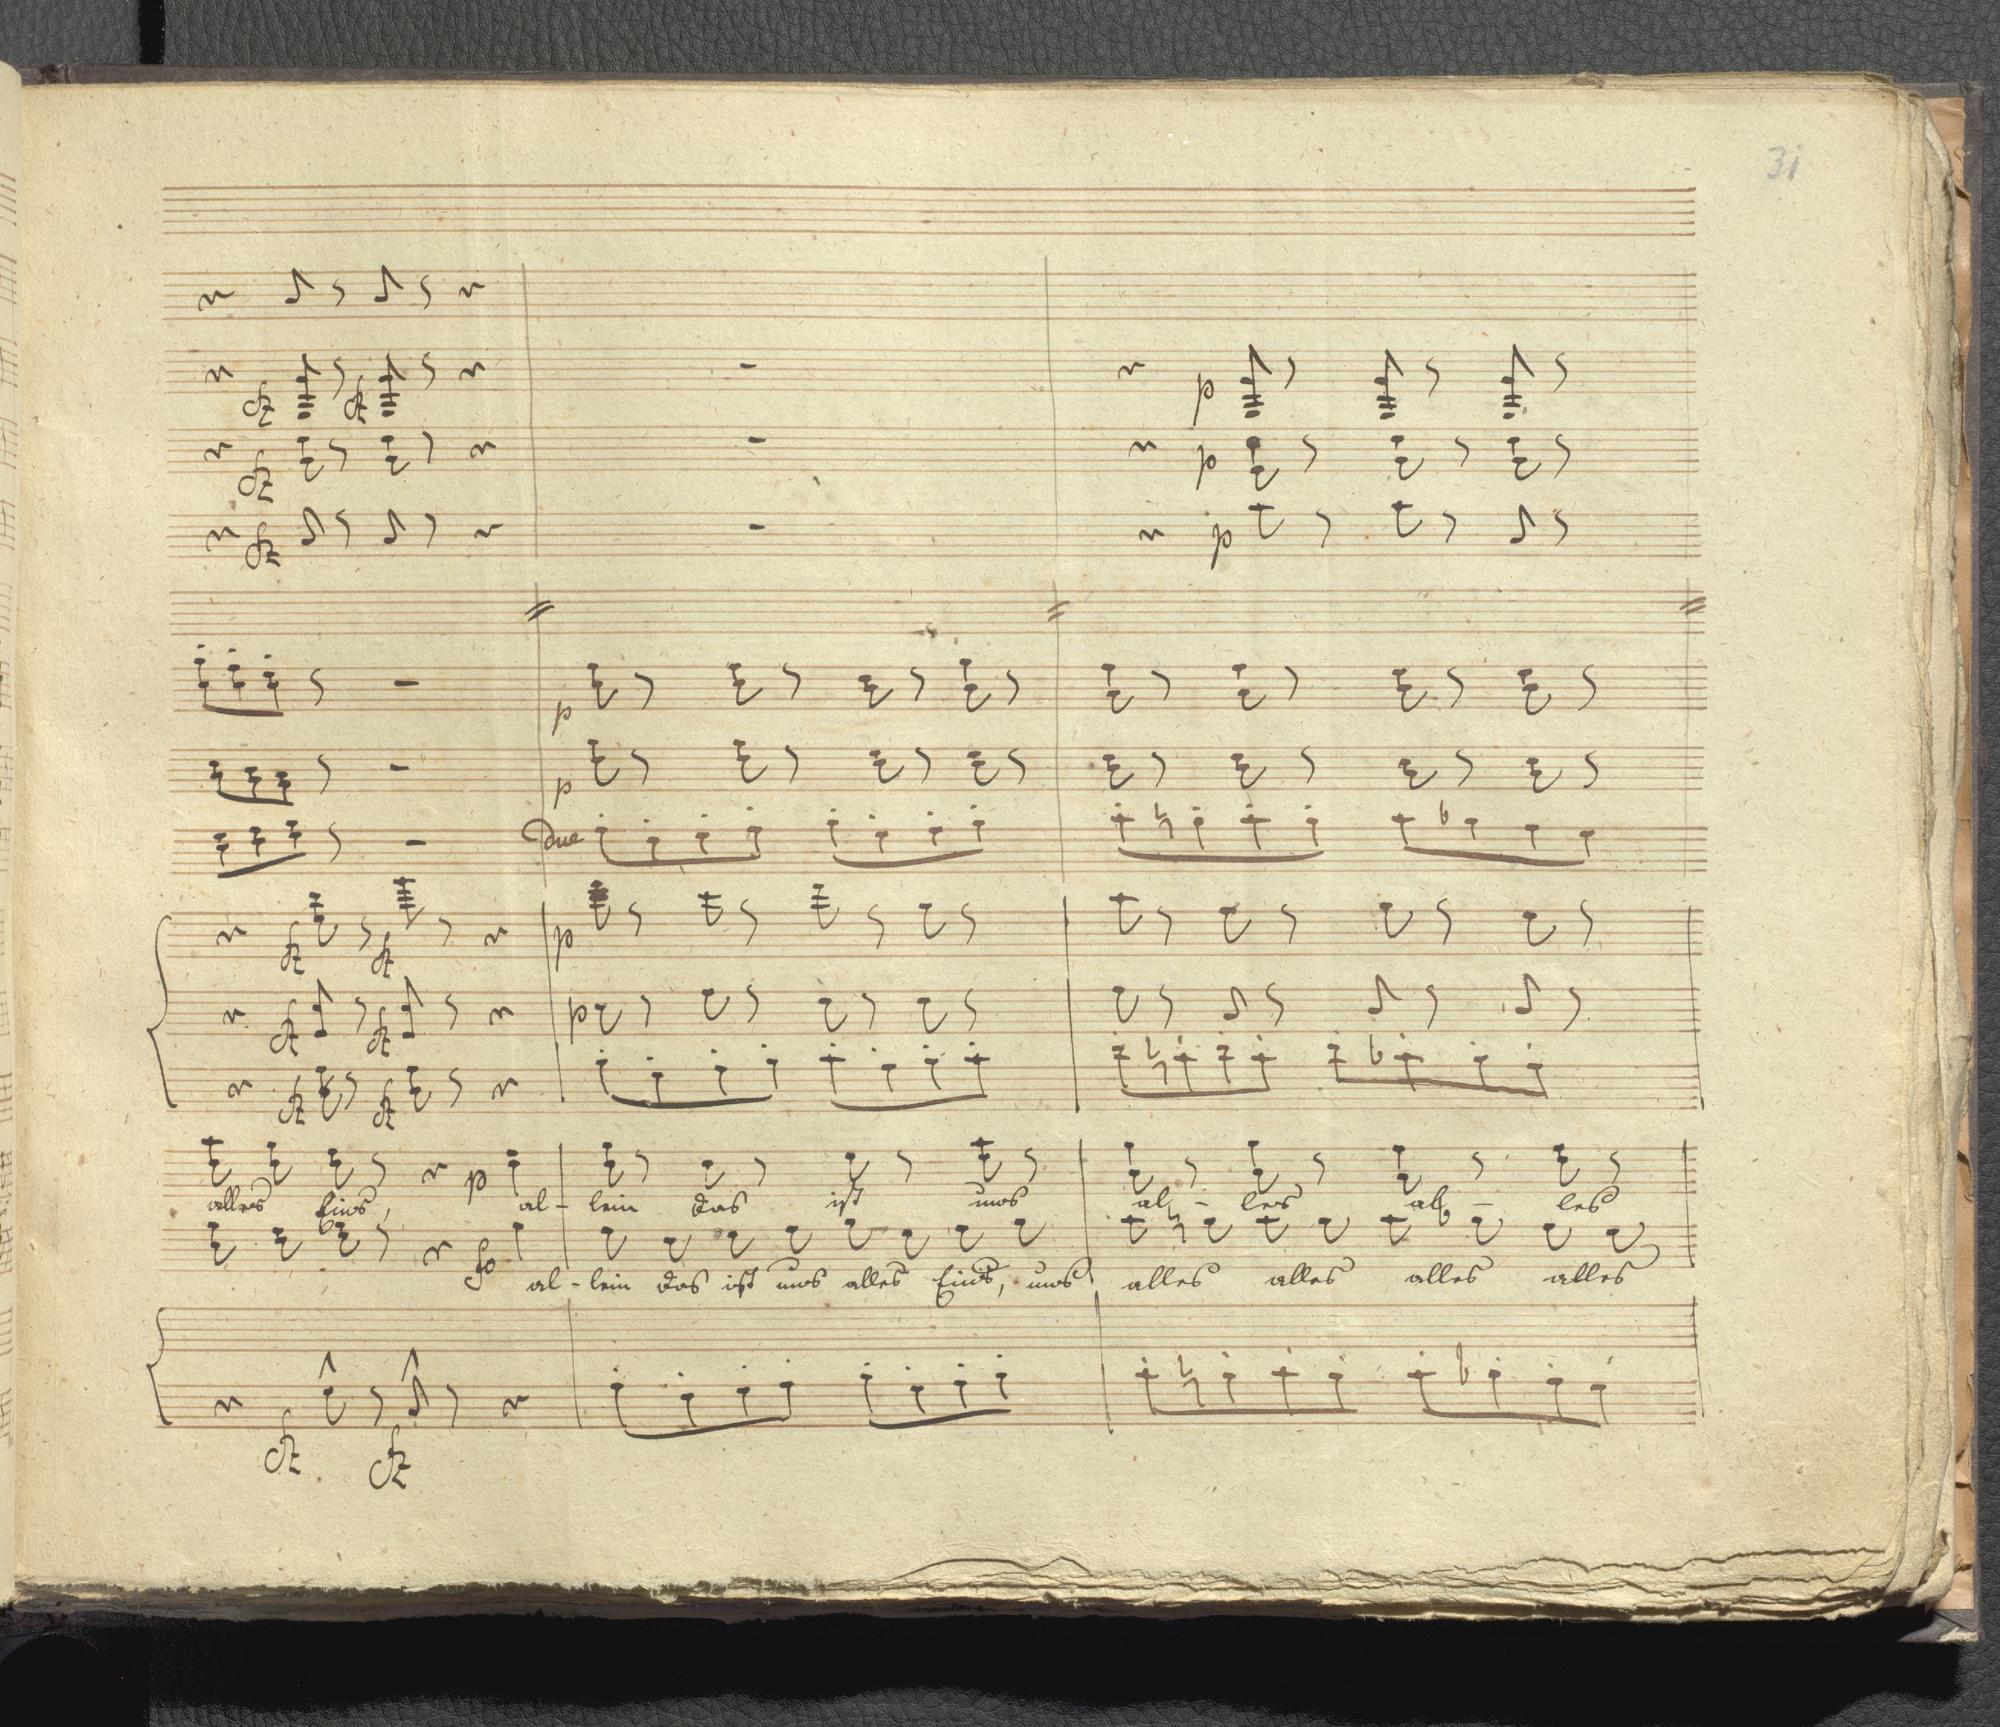 31
fz fz
fz p
fz p
fz p
p
p
Due
fz fz p
fz fz p
fz fz
p
alles Eins, al- lein das ist uns al - les al - les
fo
al - lein das ist uns alles Eins, uns alles alles alles alles
fz fz